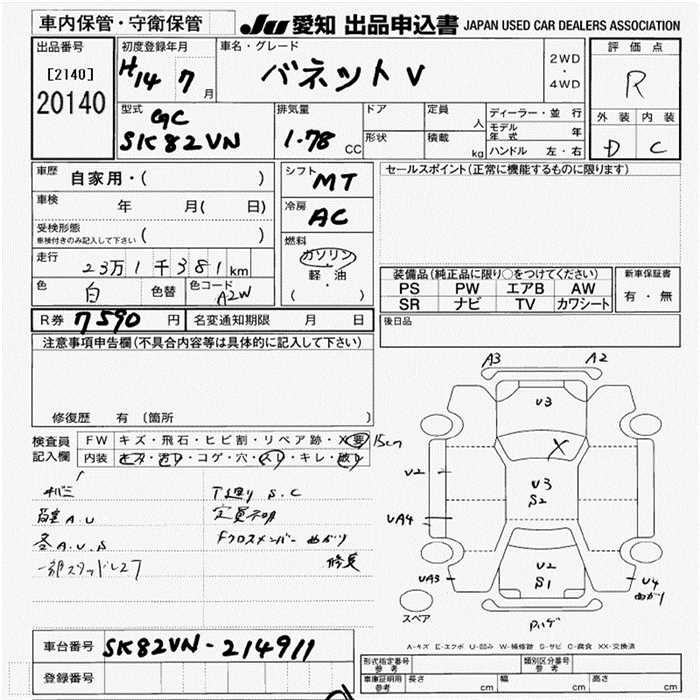 車内保管・守衛保管
JU 愛知 出品申込書 JAPAN USED CAR DEALERS ASSOCIATION
出品番号
[2140]
20140
初度登録年月
H14 7月
車名・グレード
バネットV
2WD
・
4WD
評価点
R
外装 内装
D C
型式
GC
SK82VN
排気量
1.78 CC
ドア
定員 人
形状
積載 kg
ディーラー・並行
モデル年式 年
ハンドル 左・右
車歴
自家用・( )
車検
年 月( 日)
受検形態
車検付きのみ記入して下さい ( )
走行
23万1千381km
色
白
色替
色コード
A2W
シフト
MT
冷房
AC
燃料
ガソリン
軽・油
( )
R券 7590円
名変通知期限 月 日
セールスポイント(正常に機能するものに限ります)
装備品(純正品に限り○をつけてください)
PS PW エアB AW
SR ナビ TV カワシート
新車保証書
有・無
後日品
注意事項申告欄(不具合内容等は具体的に記入して下さい)
修復歴 有 (箇所 )
検査員
記入欄
FW キズ・飛石・ヒビ割・リペア跡・X要 15cm
内装 キズ・汚レ・コゲ・穴・スレ・キレ・破レ
A.U
A.U.S
下廻り S.C
定員不明
Fクロスメンバー 曲がり
修復
A3 A2
U3
X
U2
U3
S2
UA4
U2
S1
UA3
U4
曲がり
スペア
Pハゲ
A-キズ E-エクボ U-凹み W-補修跡 S-サビ C-腐食 XX-交換済
車台番号 SK82VN-214911
登録番号
形式指定番号
参考
類別区分番号
参考
車庫証明用
参考
長さ cm
幅 cm
高さ cm